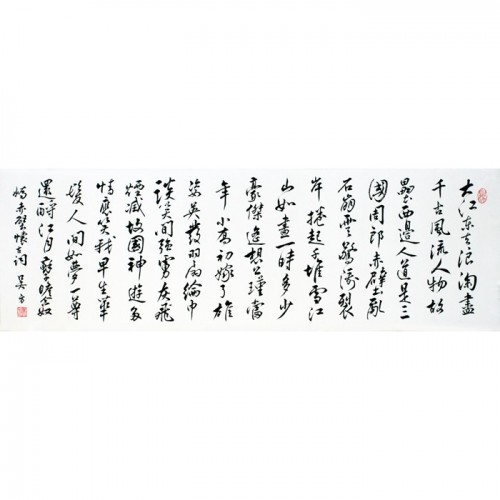 大江东去浪淘盡
千古風流人物故
壘西邊人道是三
國周郎赤壁亂
石崩雲驚濤裂
岸捲起千堆雪江
山如畫一時多少
豪傑遙想公瑾當
年小喬初嫁了雄
姿英發羽扇綸巾
談笑間強虜灰飛
煙滅故國神遊多
情應笑我早生華
髮人間如夢一尊
還酹江月蘇軾念奴
嬌赤壁懷古词